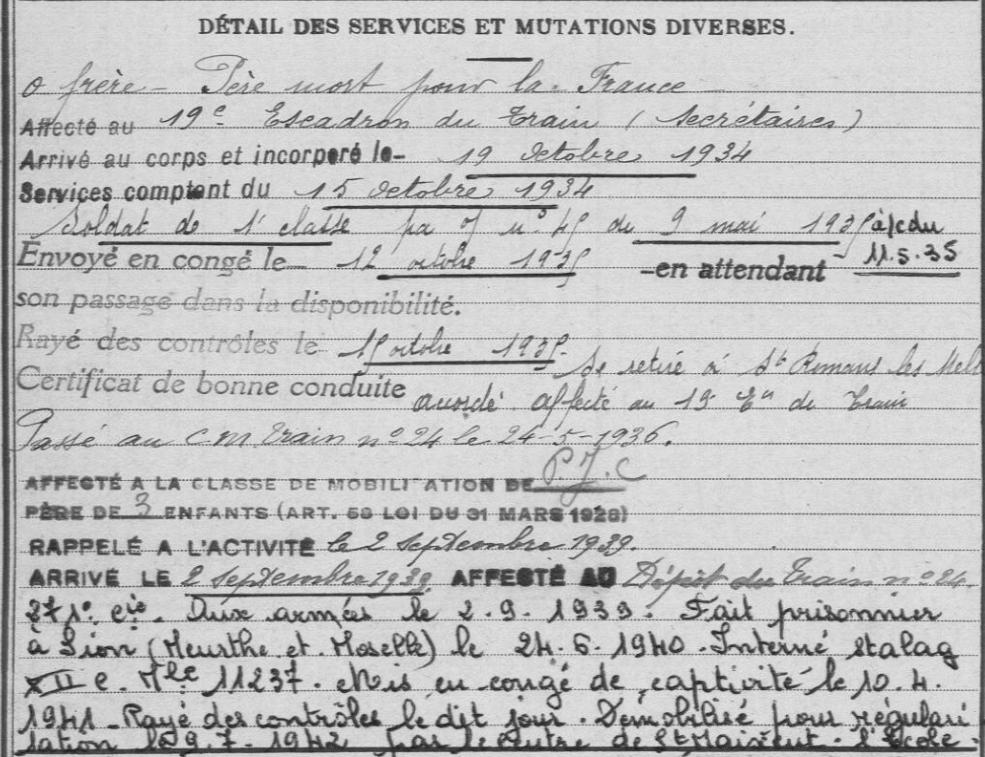 DÉTAIL DES SERVICES ET MUTATIONS DIVERSES.
o frère - Père mort pour la France
Affecté au 19e Escadron du Train (Secrétaires)
Arrivé au corps et incorporé le 19 Octobre 1934
Services comptant du 15 octobre 1934
Soldat de 1e classe pa n° 45 du 9 mai 1935 à/c du
Envoyé en congé le 12 octobre 1935 - en attendant 11.5.35
son passage dans la disponibilité.
Rayé des contrôles le 15 octobre 1935. Se retire à St Romans les Mell
Certificat de bonne conduite accordé. affecté au 19 En de Train
Passé au C M Train n° 24 le 24-5-1936.
AFFECTÉ A LA CLASSE DE MOBILI ATION DE
PÈRE DE 3 ENFANTS (ART. 58 LOI DU 31 MARS 1928)
RAPPELÉ A L'ACTIVITÉ le 2 Septembre 1939.
ARRIVÉ LE 2 Septembre 1939. AFFECTÉ AU Dépôt du Train n° 24
271e Cie. Aux armées le 2.9.1939. Fait prisonnier
à Sion (Meurthe et Moselle) le 24.6.1940. Interné Stalag
XII C. Mle 11237. Mis en congé de captivité le 10.4.
1941 - Rayé des contrôles le dit jour. Démobilisé pour régulari
sation le 9.7.1942 par le centre de St Maixent. l'Ecole.